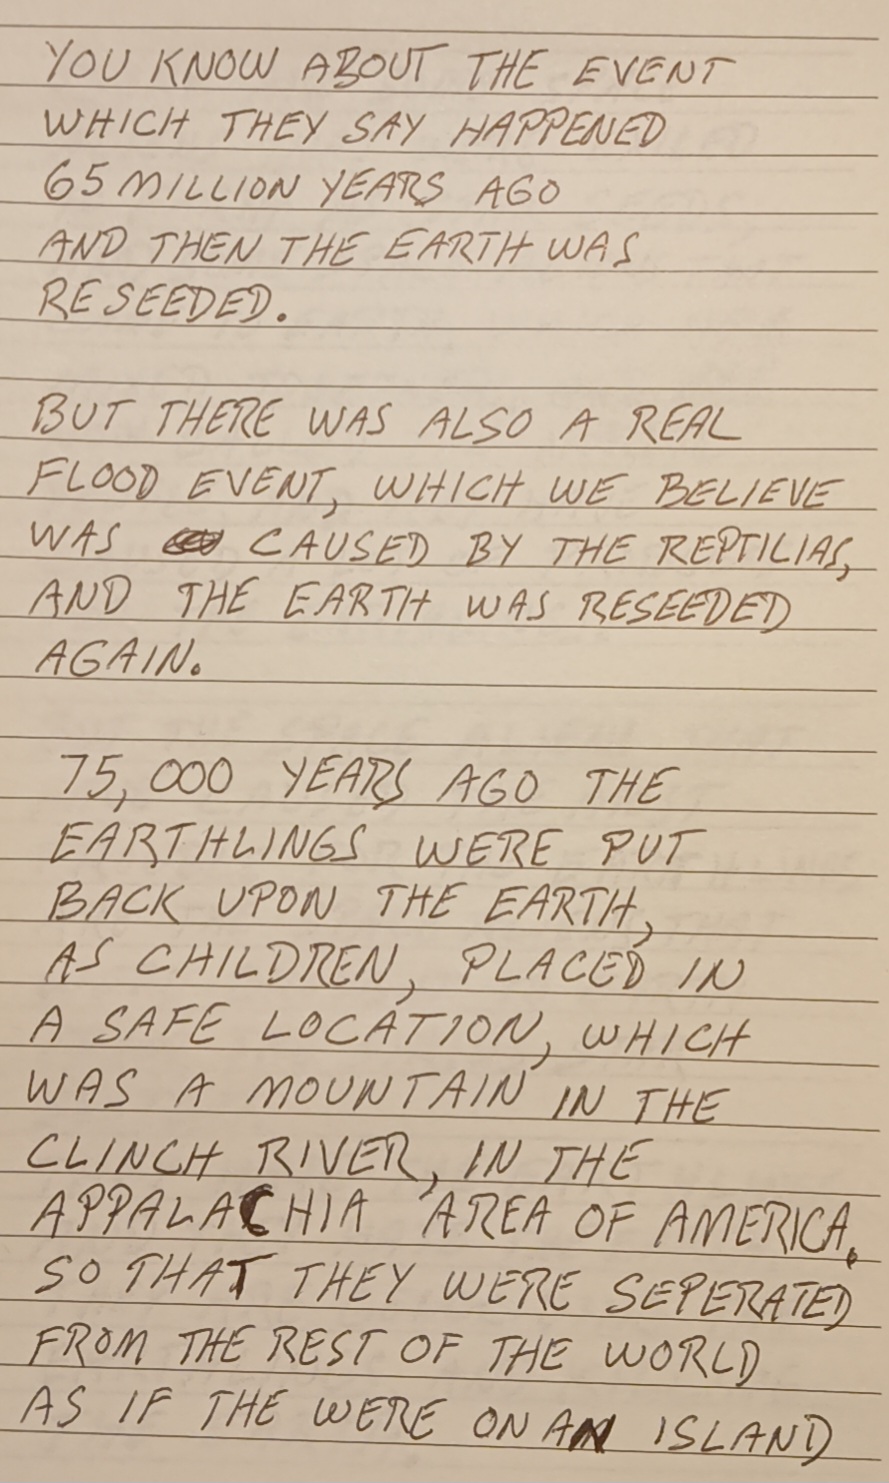 YOU KNOW ABOUT THE EVENT
WHICH THEY SAY HAPPENED
65 MILLION YEARS AGO
AND THEN THE EARTH WAS
RESEEDED.
BUT THERE WAS ALSO A REAL
FLOOD EVENT, WHICH WE BELIEVE
WAS CAUSED BY THE REPTILIAS,
AND THE EARTH WAS RESEEDED
AGAIN.
75,000 YEARS AGO THE
EARTHLINGS WERE PUT
BACK UPON THE EARTH,
AS CHILDREN, PLACED IN
A SAFE LOCATION, WHICH
WAS A MOUNTAIN IN THE
CLINCH RIVER, IN THE
APPALACHIA AREA OF AMERICA.
SO THAT THEY WERE SEPERATED
FROM THE REST OF THE WORLD
AS IF THE WERE ON AN ISLAND